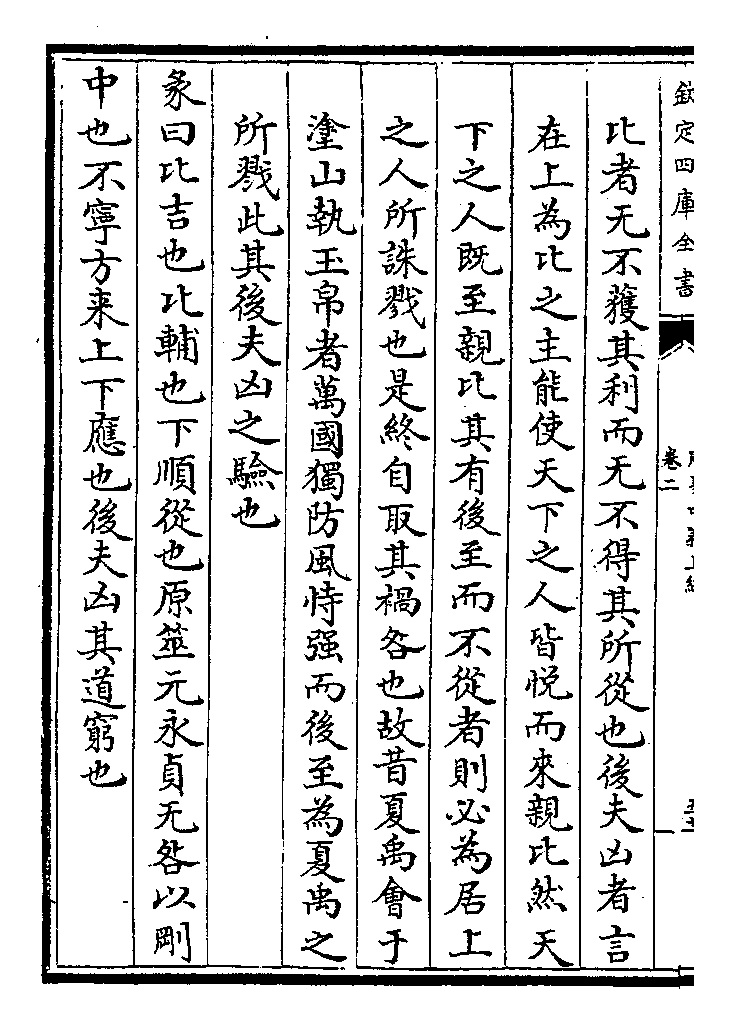 欽定四庫全書
卷二
比者无不獲其利而无不得其所從也後夫凶者言
在上為比之主能使天下之人皆悅而來親比然天
下之人既至親比其有後至而不從者則必為居上
之人所誅戮也是終自取其禍咎也故昔夏禹會于
塗山執玉帛者萬國獨防風恃强而後至為夏禹之
所戮此其後夫凶之驗也
彖曰比吉也比輔也下順從也原筮元永貞无咎以剛
中也不寧方来上下應也後夫凶其道窮也